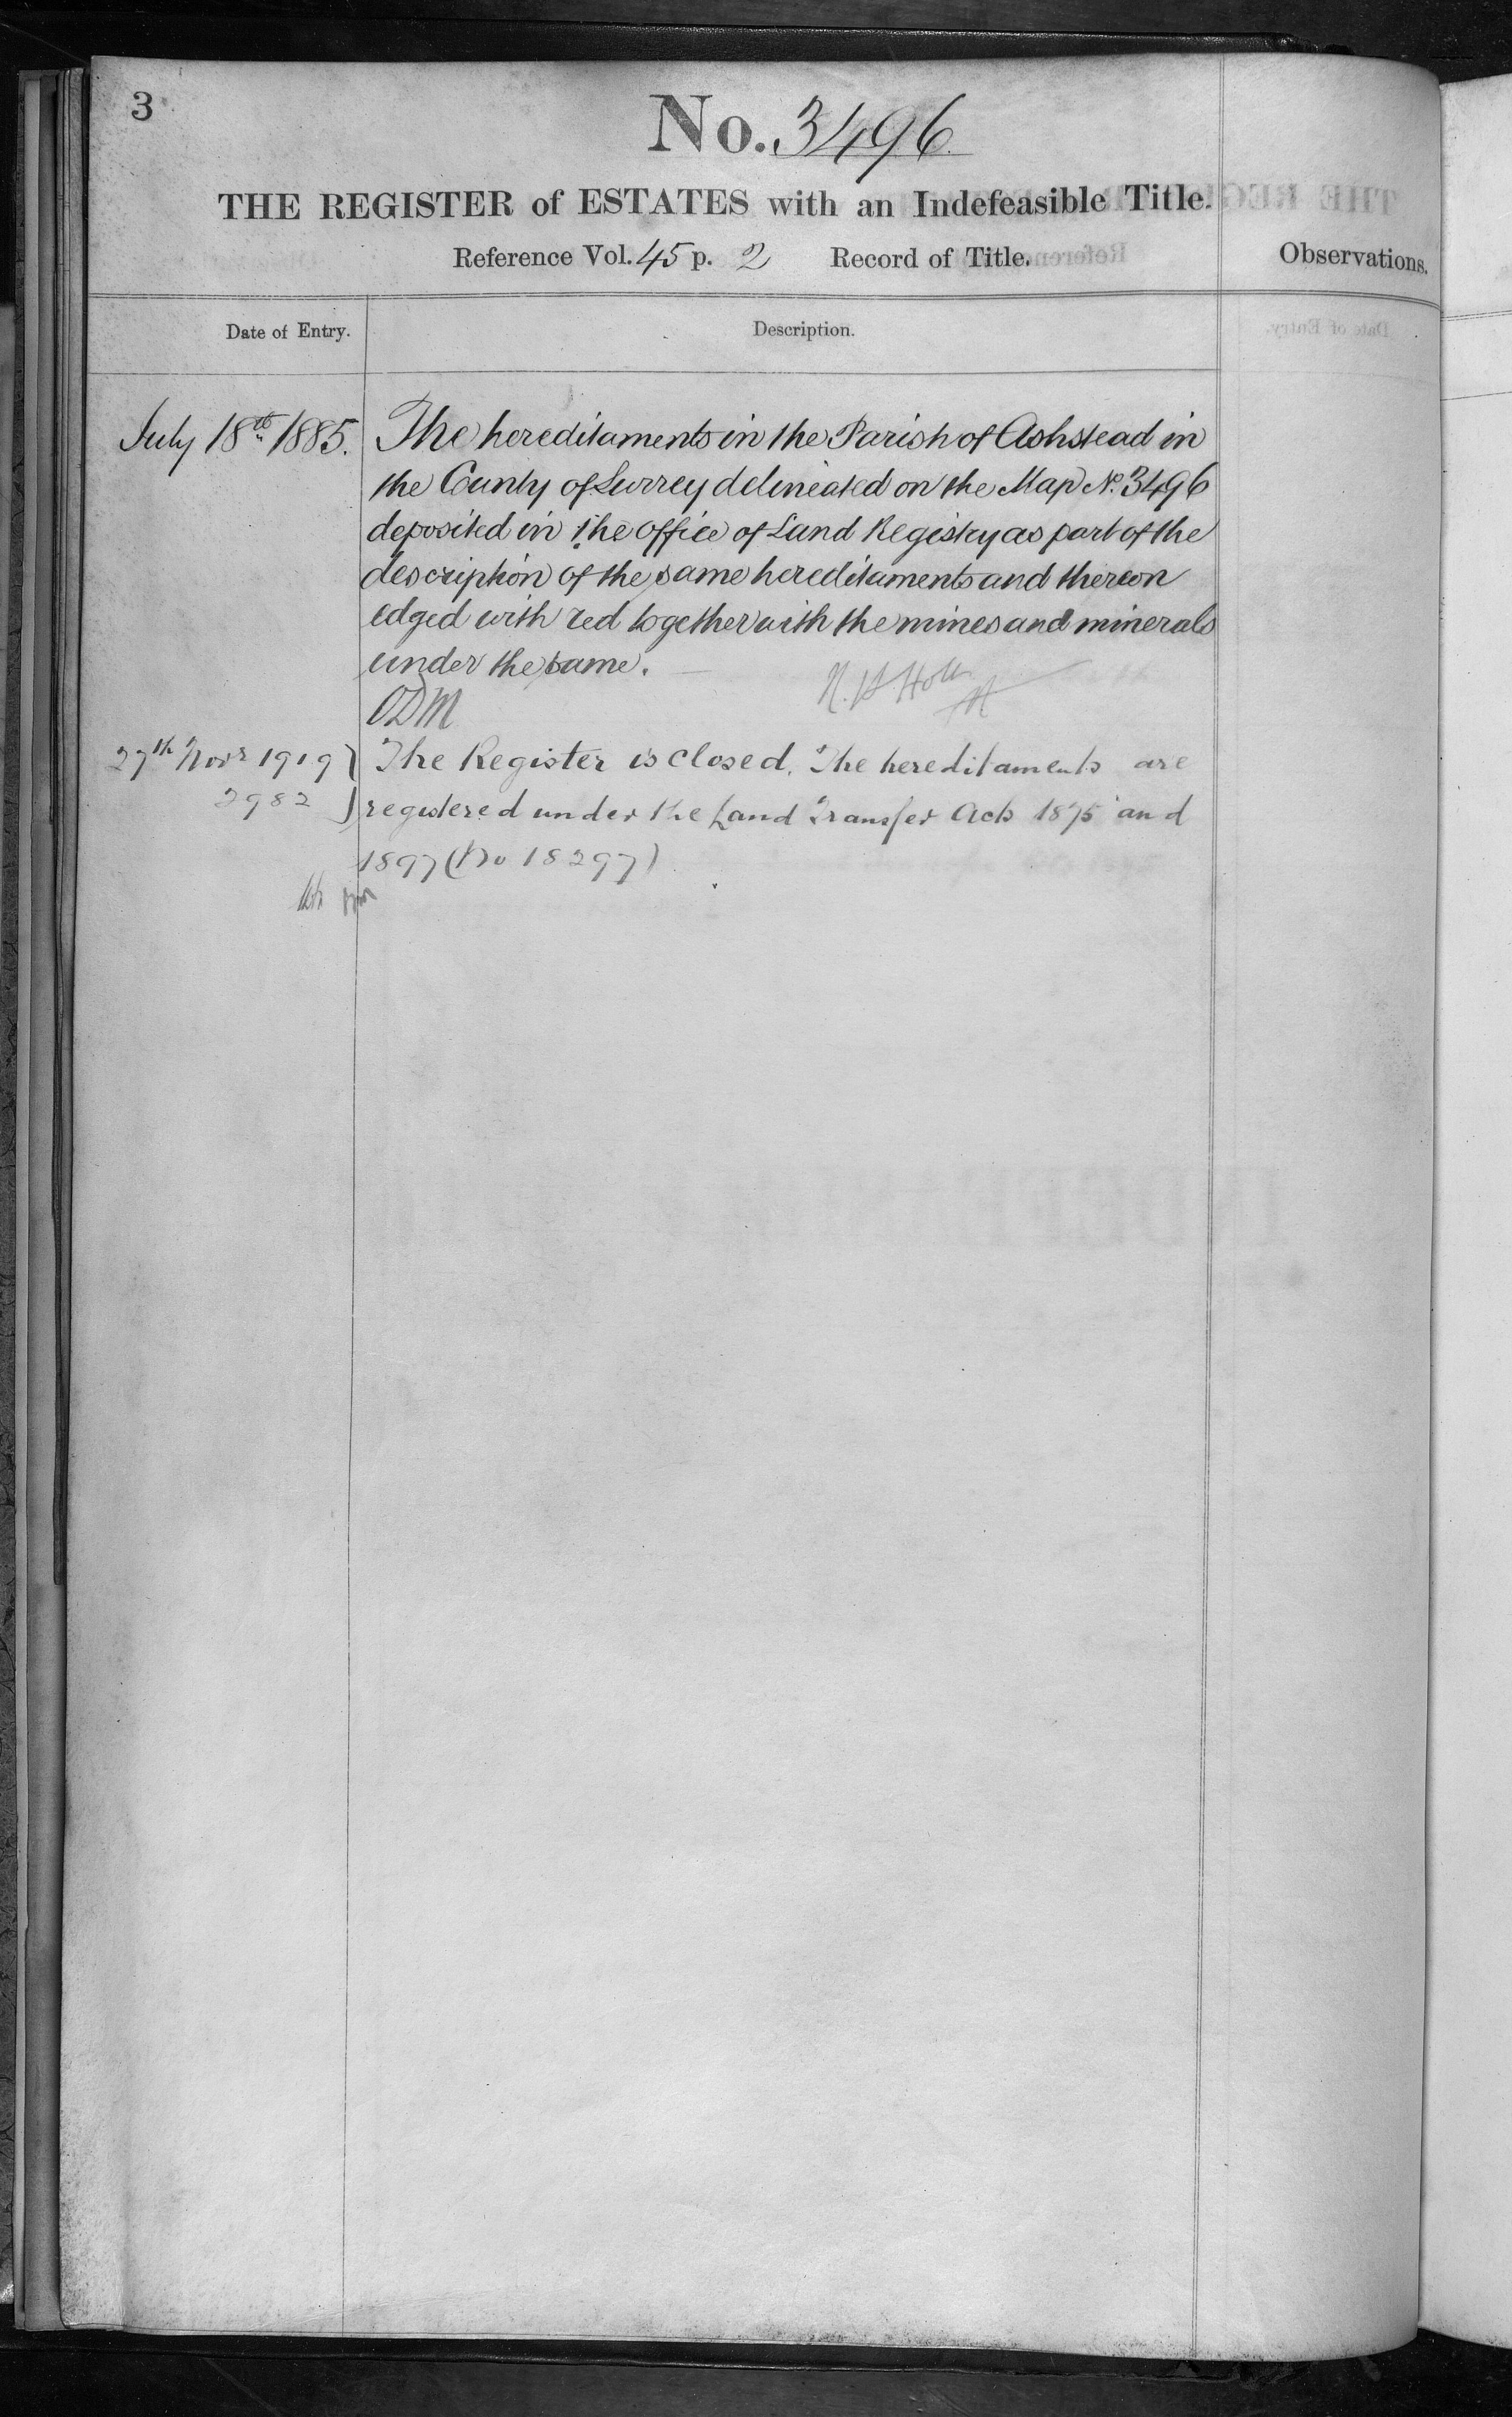 3
No. 3496
THE REGISTER of ESTATES with an Indefeasible Title.
Reference Vol. 45 p. 2 Record of Title.
Observations.
Date of Entry.
Description.
July 18th 1885.
The hereditaments in the Parish of Ashstead in
the County of Surrey delineated on the Map No. 3496
deposited in the office of Land Registry as part of the
description of the same hereditaments and thereon
edged with red together with the mines and minerals
under the same.
ODM
27th Novr 1919
2982
The Register is closed. The hereditaments are
registered under the Land Transfer Acts 1875 and
1897 (No 18297)